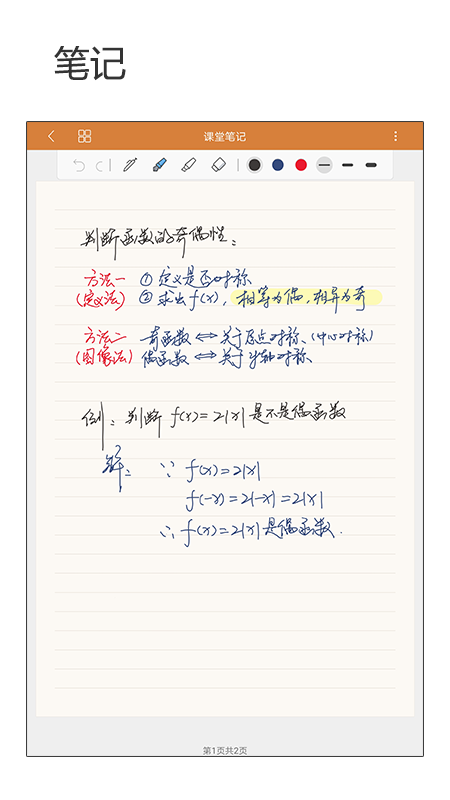 笔记
课堂笔记
判断函数的奇偶性：
方法一 ① 定义是否对称
(定义法) ② 求出f(x)，相等为偶，相异为奇
方法二 奇函数 ⇔ 关于原点对称、(中心对称)
(图像法) 偶函数 ⇔ 关于y轴对称、
例：判断 f(x)=2|x| 是不是偶函数
解： ∵ f(x)=2|x|
f(-x)=2|-x|=2|x|
∴ f(x)=2|x| 是偶函数.
第1页共2页